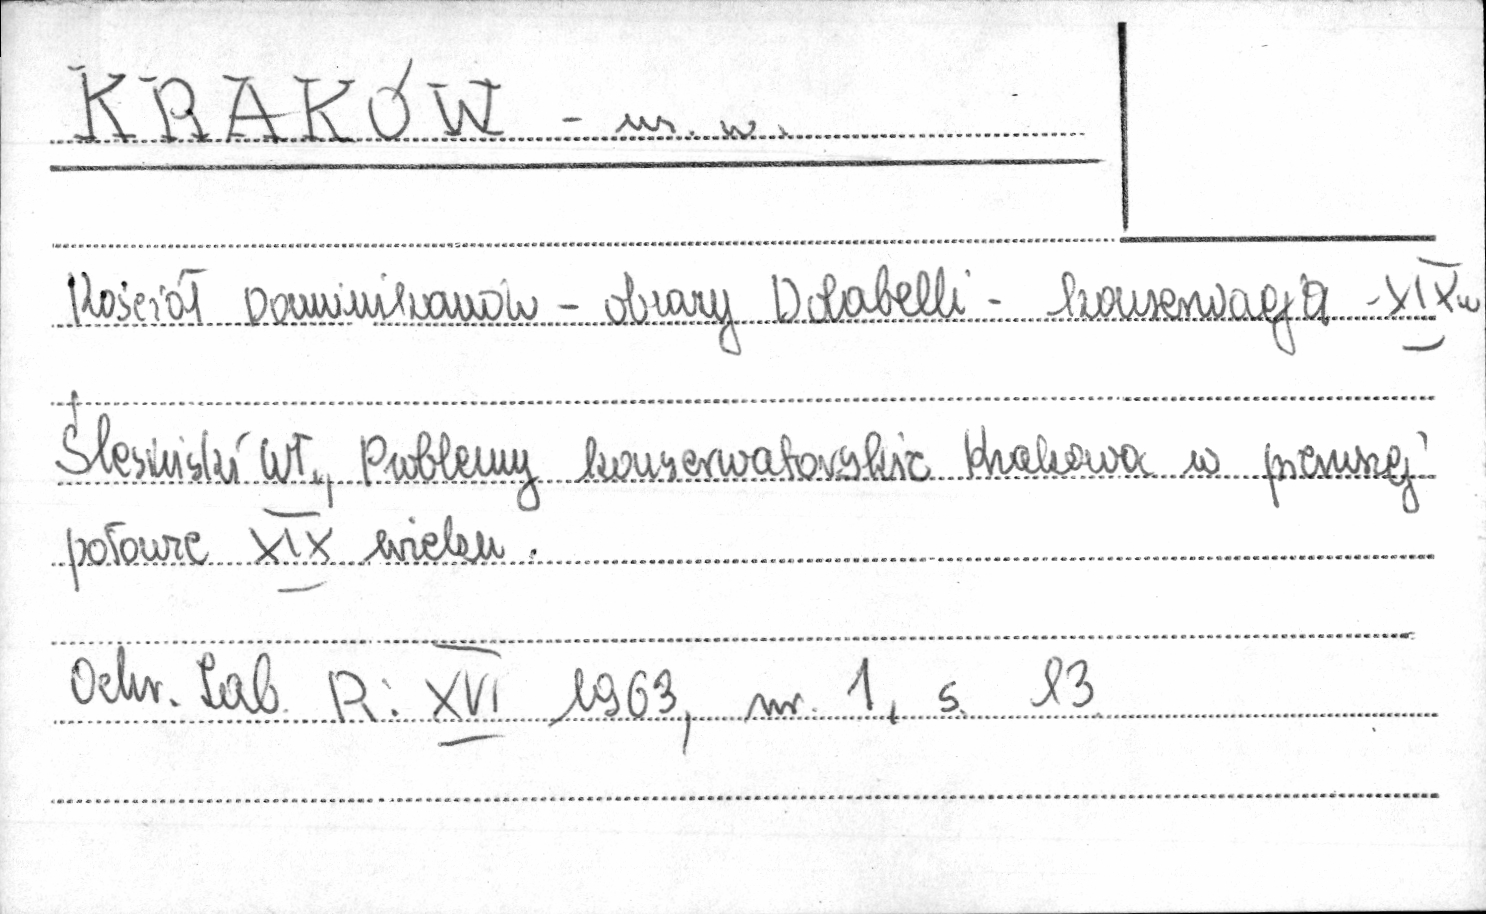 KRAKÓW - m. w.
Kościół Dominikanów - obrazy Dolabelli - konserwacja - XIX w
Ślesiński Wł., Problemy konserwatorskie Krakowa w pierwszej
połowie XIX wieku.
Ochr. Zab. R: XVI 1963, nr. 1, s. 13